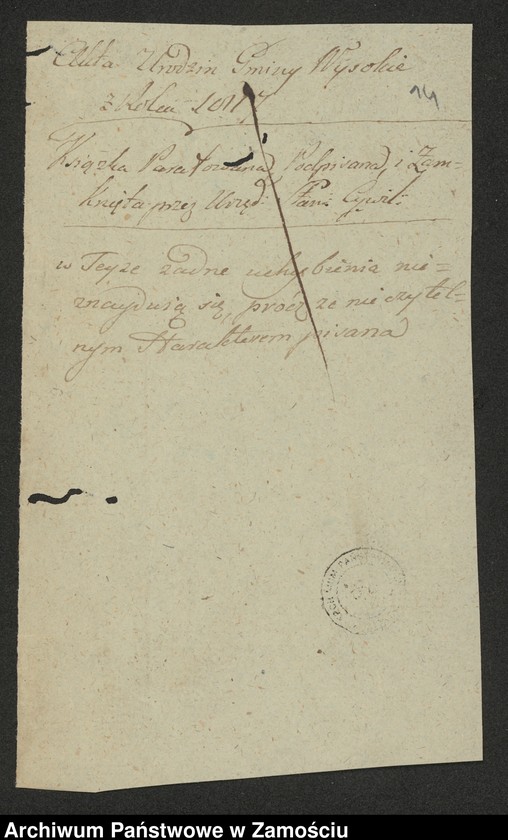 Akta Urodzin Gminy Wysokie
z Roku 1817
14
Książka Parafowana, Podpisana, i Zam=
knięta przez Urzęd: Stanu Cywil:
w Teyże żadne uchybienia nie=
znayduią się, prócz że nie czytel=
nym Harakterem pisana
Archiwum Państwowe w Zamościu